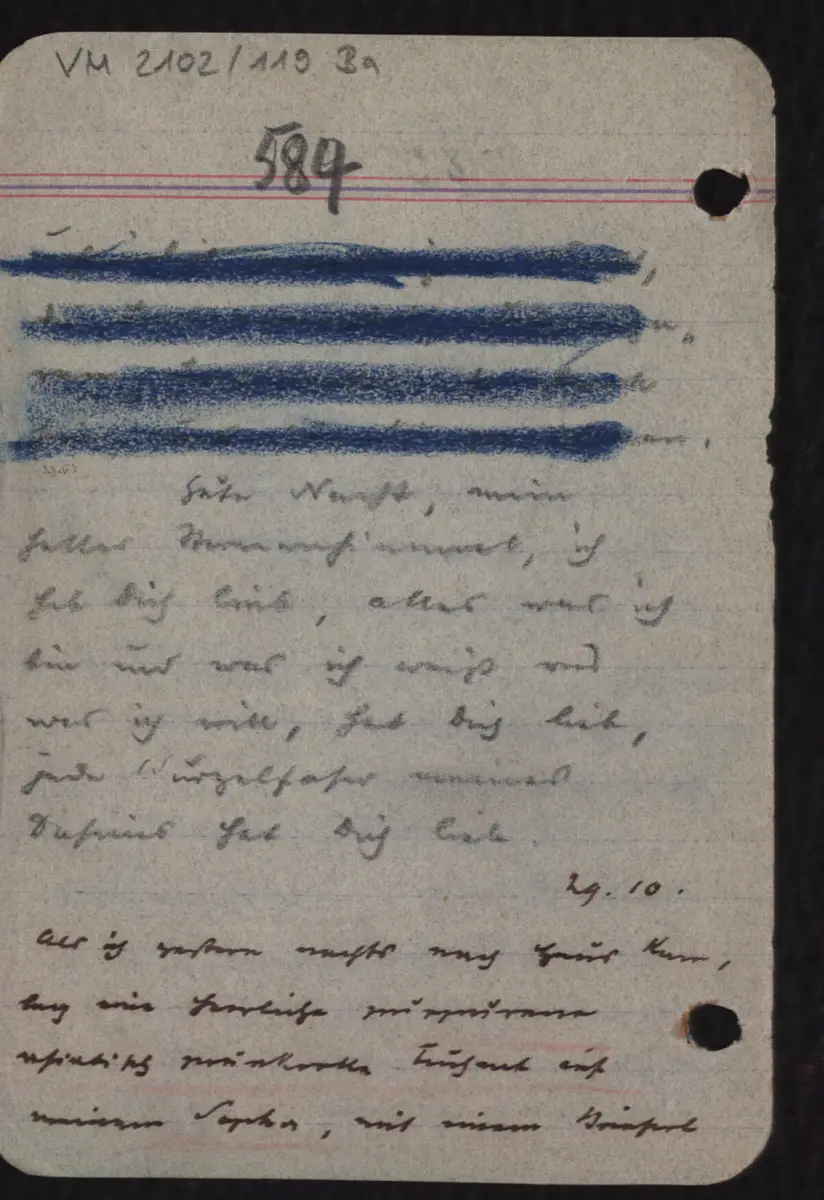 VM 2102/119 Ba
584
Gute Nacht, mein
heller Sternenhimmel, ich
hab Dich lieb, alles was ich
bin und was ich weiß und
was ich will, hat Dich lieb,
jede Wurzelfaser meines
Daseins hat Dich lieb.
29. 10.
Als ich gestern nachts nach Haus kam,
lag eine herrliche purpurene
asiatisch prunkvolle auf
meinem Sopha, mit einem Brieferl